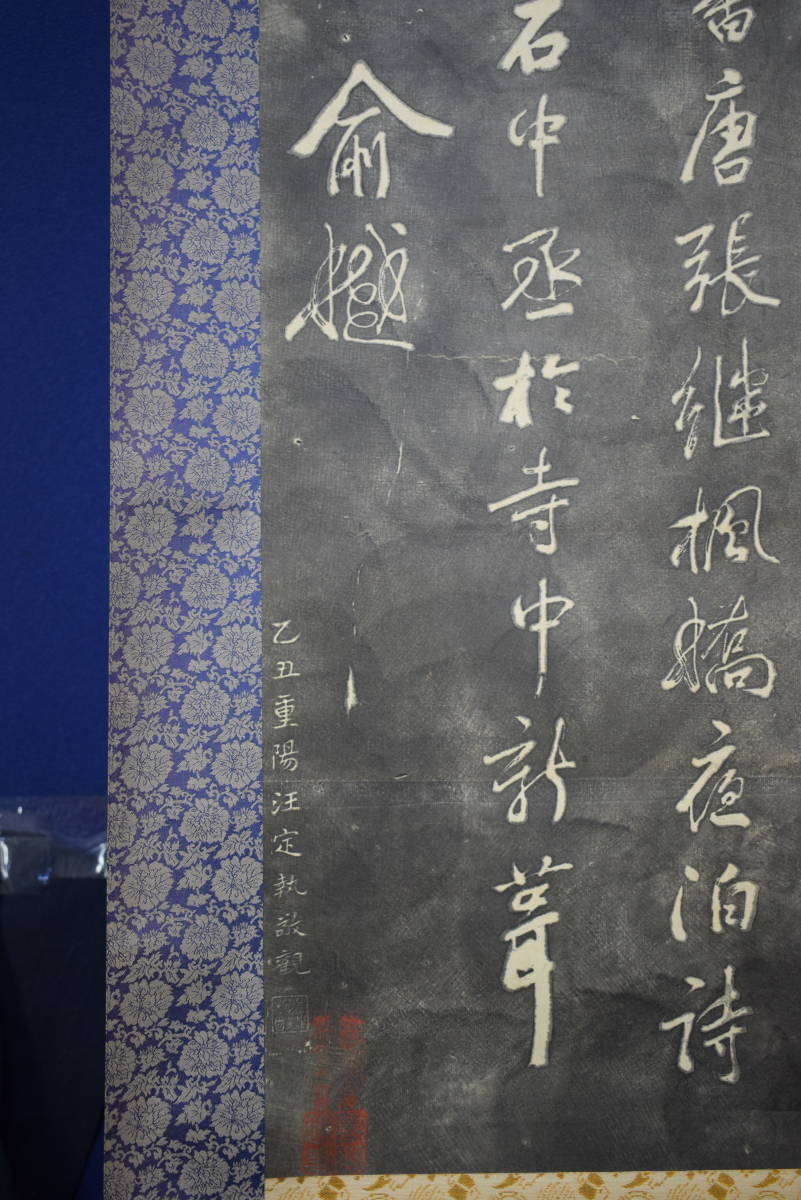 唐張継楓橋夜泊詩
石中丞於寺中新葺
俞樾
乙丑重陽汪定執敬觀